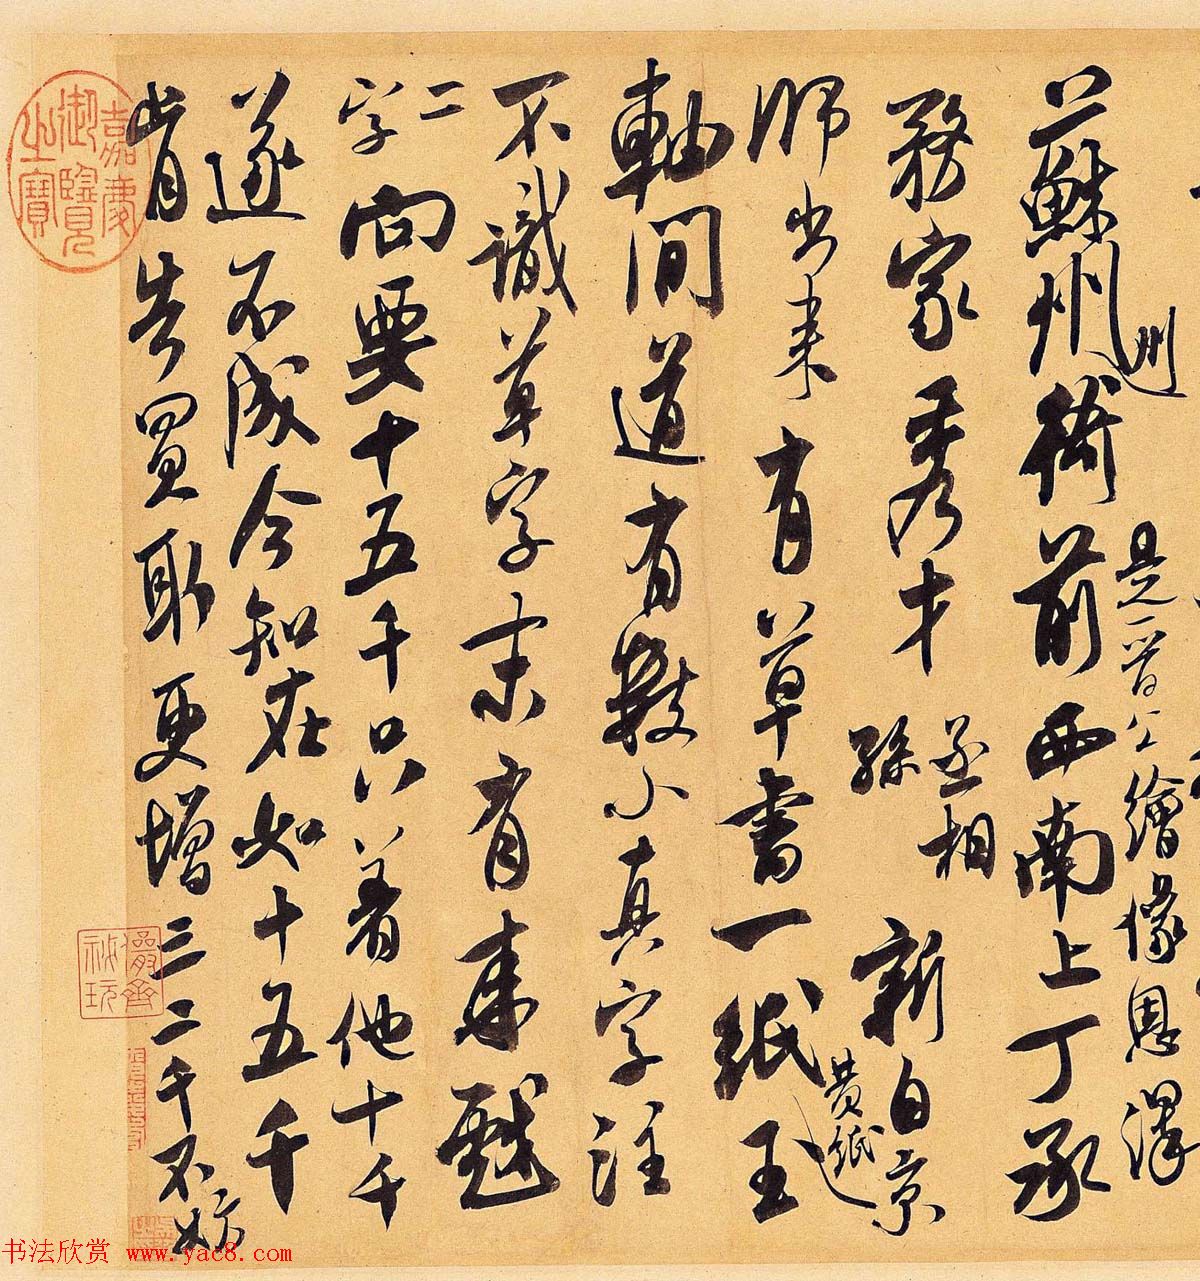 州
是晉公繪像恩澤
蘇州衙前西南上丁承
務家秀才
丞相
孫
新自京
師出来有草書一紙
黄紙
玉
軸間道有數小真字注
不識草字末有来戲
二
字向要十五千只着他十千
遂不成今知在如十五千
肯告買取更增三二千不妨
嘉慶御覽之寶
儼齋秘玩
书法欣赏 www.yac8.com